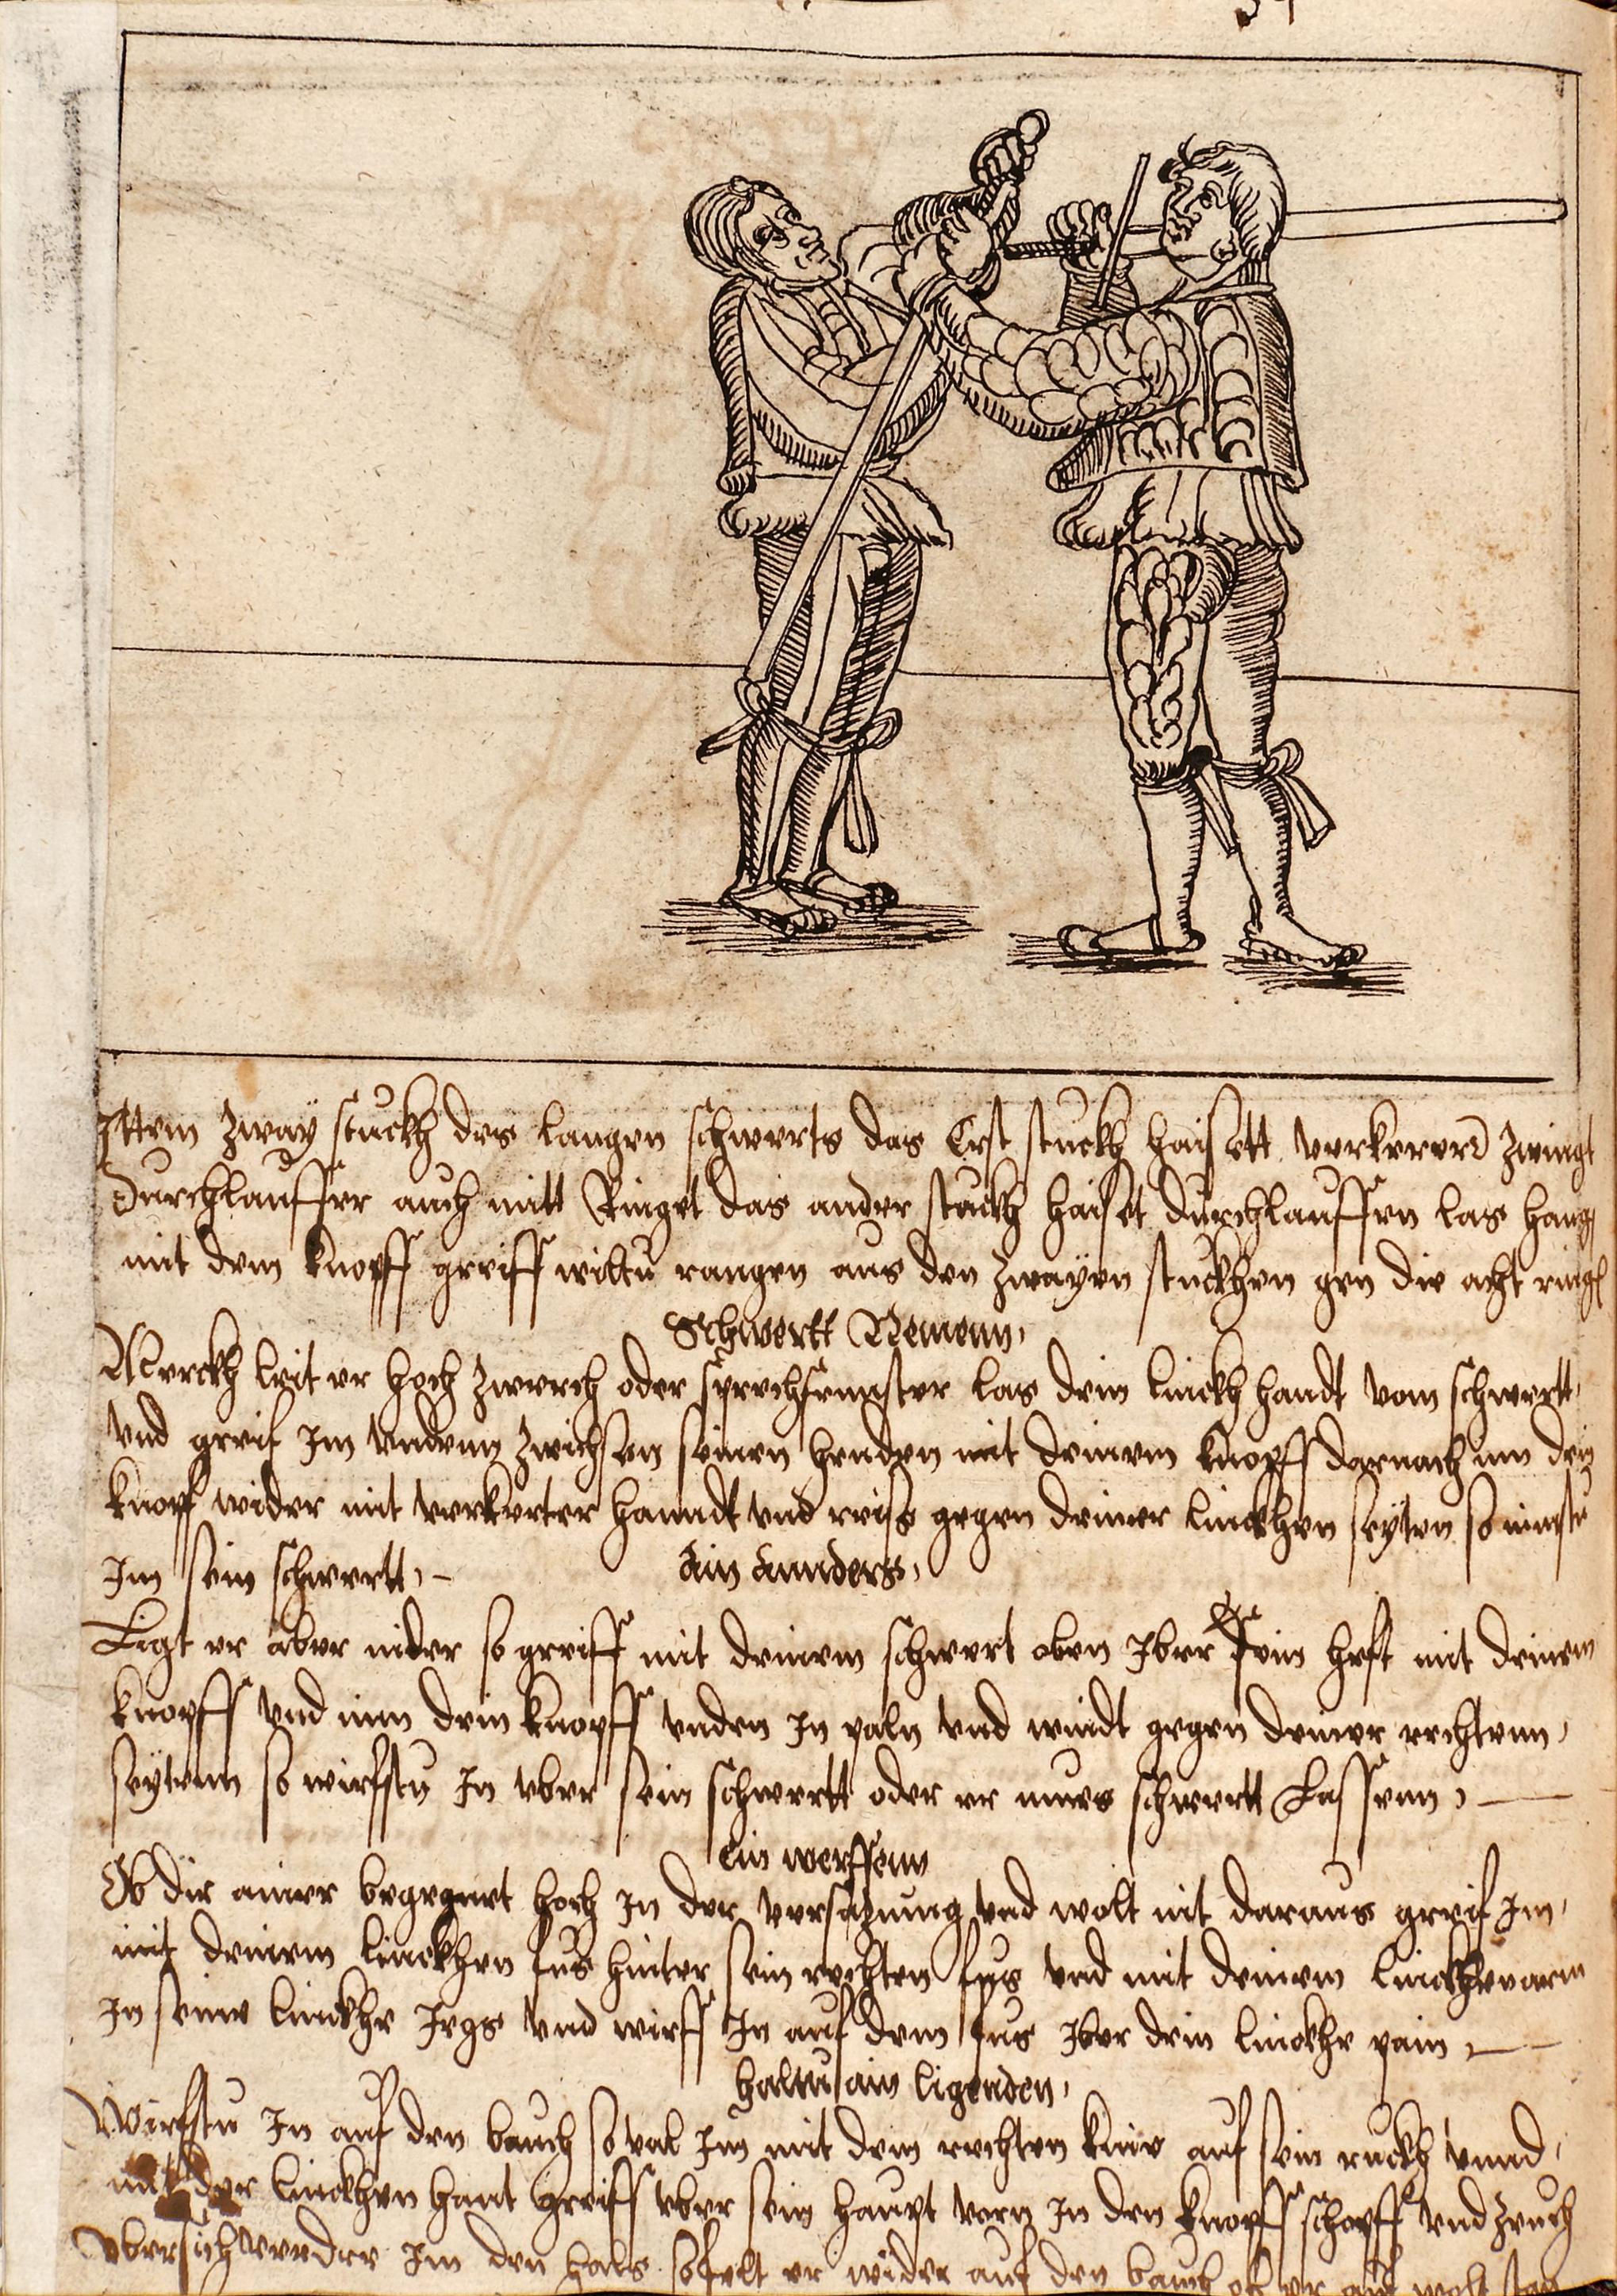 Ittem zway stuckh des langen schwerts das Erst stuckh haisett verkerer zwingt
durchlauffer auch mitt Ringet das ander stuckh haiset durchlauffen las hang
mit dem knopff greiff wiltu rangen aus den zwayen stuckhen gen die acht ring
Schwertt Nemenn,
Merckh leit er hoch zwerch oder sprechfennster las dein linckh handt vom schwertt,
vnd greif Im vndenn zwichsen seinen henden mit deinem knopff darnach nim dein
knopf wider mit verkerter hanndt vnd reiss gegen deiner linckhen seyten so nimstu
Im sein schwertt, –
Ain annders,
Ligt er aber nider so greiff mit deinem schwert oben Iber sein heft mit deinem
knopff vnd nim dein knopff vnden In paln vnd windt gegen deiner rechtenn,
seytenn so wirfstu In vber sein schwertt oder er mues schwertt Lassenn, —
Ein werffenn
Ob dir ainer begegnet hoch In der versazung vnd wolt nit daraus greif Im,
mit deinem linckhen fus hinter sein rechten fus vnd mit deinem linckhen arm
In seine linckhe Irgs vnd wirff In auf dem fus Iber dein linckhe pain, —
haltu ain ligenden,
Wirfstu In auf den bauch so val Im mit dem rechten knie auf sein ruckh vnnd,
mit der linckhen hant greiff vber sein haupt vorn In den knopff schopff vnd zeuch
vbersich wender Im den hals so felt er wider auf den bauch ob er auf wolt stan